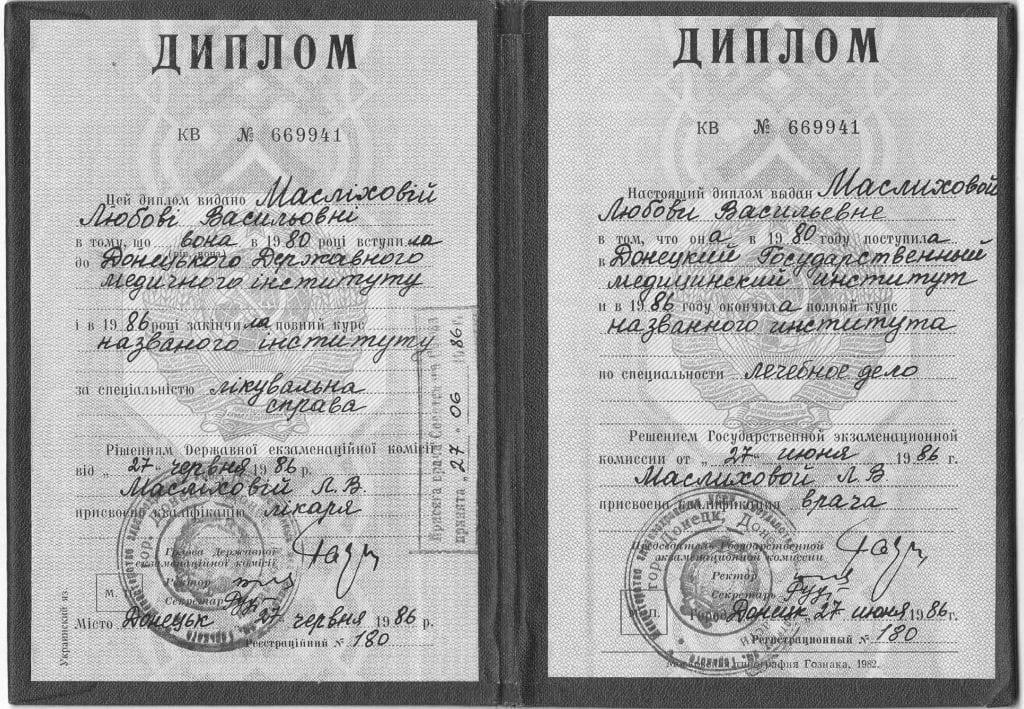 ДИПЛОМ
КВ № 669941
Цей диплом видано Масліховій
Любові Васильовні
в тому, що вона в 1980 році вступила
до Донецького Державного
медичного інституту
і в 1986 році закінчила повний курс
названого інституту
за спеціальністю лікувальна
справа
Рішенням Державної екзаменаційної комісії
від „27" червня 1986 р.
Масліховій Л. В.
присвоєно кваліфікацію лікаря
Голова Державної
екзаменаційної комісії
Ректор
Секретар
М.
Місто Донецьк 27 червня 1986 р.
Реєстраційний № 180
Украинский яз.
Присяга врача Советского Союза
принята „27" 06 1986 г.
ДИПЛОМ
КВ № 669941
Настоящий диплом выдан Маслиховой
Любови Васильевне
в том, что она в 1980 году поступила
в Донецкий Государственный
медицинский институт
и в 1986 году окончила полный курс
названного института
по специальности лечебное дело
Решением Государственной экзаменационной
комиссии от „27" июня 1986 г.
Маслиховой Л. В.
присвоена квалификация врача
Председатель Государственной
экзаменационной комиссии
Ректор
Секретарь
П.
Город Донецк 27 июня 1986 г.
Регистрационный № 180
Московская типография Гознака. 1982.